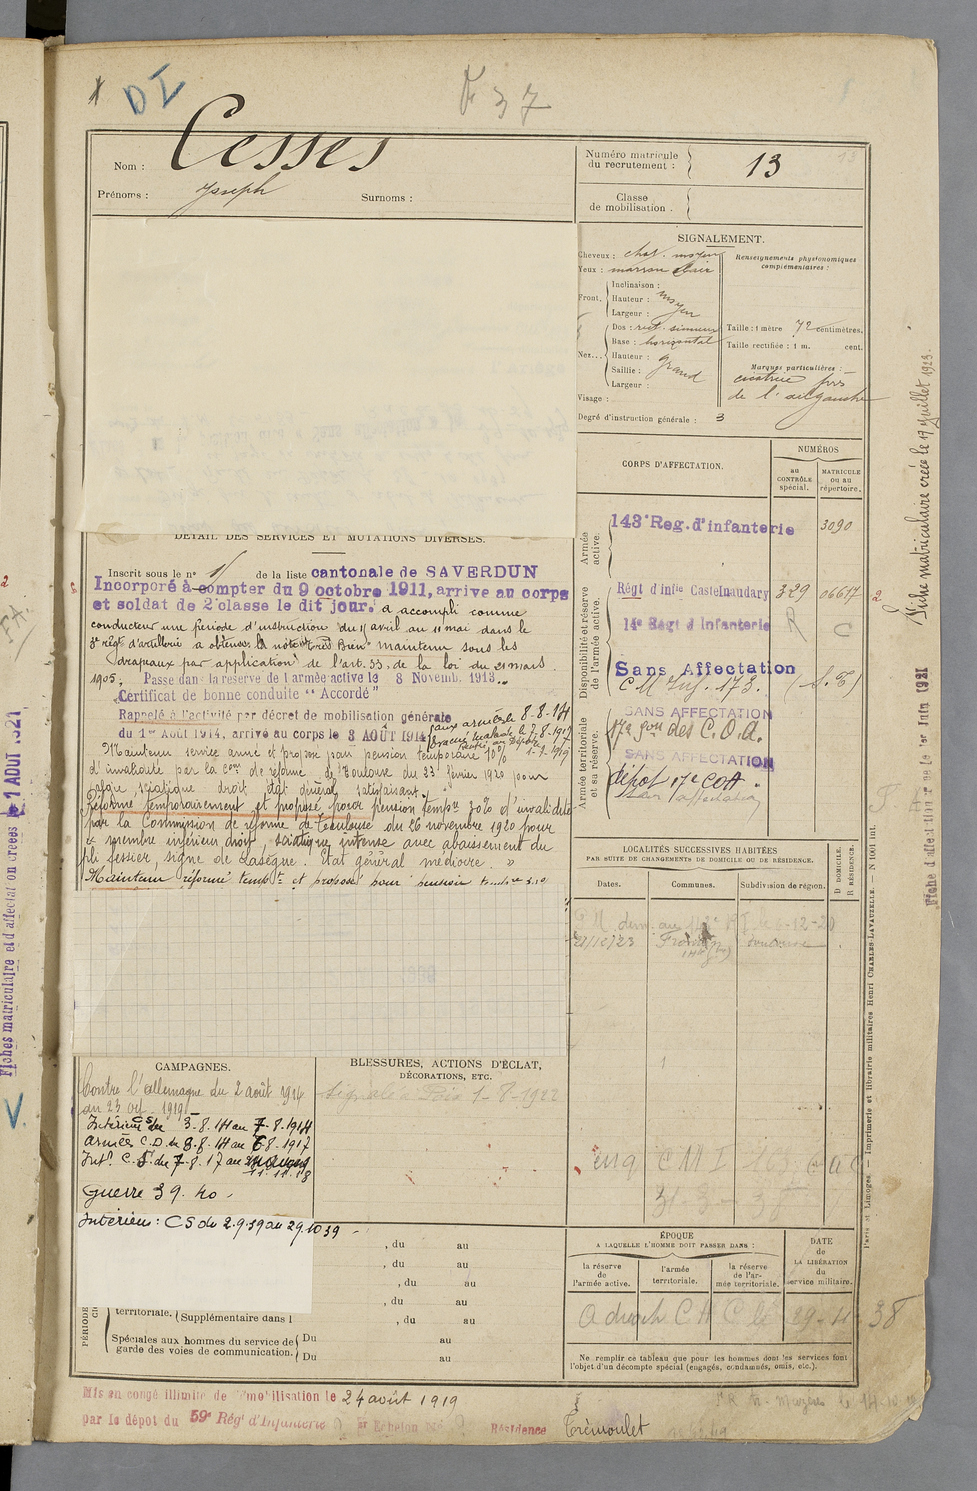 DI
F 37
Nom : Cesses
Prénoms : Joseph Surnoms :
Numéro matricule du recrutement : 13
Classe de mobilisation .
SIGNALEMENT.
Cheveux : chat. moyen
Yeux : marron clair
Front. Inclinaison :
Hauteur : moyen
Largeur :
Nez... Dos : rect. sinueux
Base : horizontal
Hauteur : grand
Saillie :
Largeur :
Visage :
Degré d'instruction générale : 3
Renseignements physionomiques complémentaires :
Taille : 1 mètre 72 centimètres.
Taille rectifiée : 1 m. cent.
Marques particulières :
cicatrice
de l'œil gauche
DÉTAIL DES SERVICES ET MUTATIONS DIVERSES.
Inscrit sous le n° de la liste cantonale de SAVERDUN
Incorporé à compter du 9 octobre 1911, arrive au corps
et soldat de 2e classe le dit jour. a accompli comme
conducteur une période d'instruction du 11 avril au 11 mai dans le
3e régt d'artillerie a obtenu la note "très Bien" maintenu sous les
drapeaux par application de l'art. 33, de la loi du 21 mars
1905. Passe dans la reserve de l'armée active le 8 Novemb. 1913..
Certificat de bonne conduite "Accordé"
Rappelé à l'activité par décret de mobilisation générale
du 1er Août 1914, arrivé au corps le 3 AOÛT 1914
aux armées le 8-8-14
Évacué malade le 7-8-1917
Maintenu service armé et proposé pour pension temporaire 10%
d'invalidité par la Con de réforme de Toulouse du 23 février 1920 pour
algie sciatique droit état général satisfaisant.
Réformé temporairement et proposé pour pension tempre 30% d'invalidité
par la Commission de réforme de Toulouse du 26 novembre 1920 pour
membre inférieur droit, sciatique intense avec abaissement du
pli fessier, signe de Lasègue. Etat général médiocre »
Maintenu réformé tempt et proposé pour pension
CORPS D'AFFECTATION.
NUMÉROS
au CONTRÔLE spécial.
MATRICULE ou au répertoire.
Armée active.
143e Reg. d'infanterie 3090
Disponibilité et réserve de l'armée active.
Régt d'infie Castelnaudary 329 06617
14e Régt d'Infanterie
Sans Affectation
C M Inf. 173. (S. E)
Armée territoriale et sa réserve.
SANS AFFECTATION
17e Son des C.O.A.
SANS AFFECTATION
dépôt 17e COA
sans affectation
LOCALITÉS SUCCESSIVES HABITÉES
PAR SUITE DE CHANGEMENTS DE DOMICILE OU DE RÉSIDENCE.
Dates. Communes. Subdivision de région. D DOMICILE. R RÉSIDENCE.
21/10/23 Toulouse
CAMPAGNES.
Contre l'Allemagne du 2 août 1914
au 23 1919
Intérieur CS du 3-8-14 au 7-8-1914
Armées C.D. du 8-8-14 au 6-8-1917
Intr. C.S. du 7-8-17 au
11.11.18
Guerre 39.40 -
Intérieur : CS du 2.9.39 au 29.10 39 -
BLESSURES, ACTIONS D'ÉCLAT,
DÉCORATIONS, ETC.
Signalé à Foix 1-8-1922
, du au
, du au
, du au
, du au
territoriale. Supplémentaire dans l , du au
Spéciales aux hommes du service de garde des voies de communication. Du au
Du au
ÉPOQUE
A LAQUELLE L'HOMME DOIT PASSER DANS :
la réserve de l'armée active.
l'armée territoriale.
la réserve de l'armée territoriale.
DATE de LA LIBÉRATION du service militaire.
Ne remplir ce tableau que pour les hommes dont les services font
l'objet d'un décompte spécial (engagés, condamnés, omis, etc.).
Mis en congé illimité de démobilisation le 24 août 1919
par le dépôt du 59e Rég' d'Infanterie Échelon Résidence Trémoulet
Fiche matriculaire créée le 17 juillet 1923.
Fiche d'affectation créée le 1er Juin 1921
Paris et Limoges. — Imprimerie et librairie militaires Henri CHARLES-LAVAUZELLE. — N 1001 int.
Fiches matriculaire et d'affectation créées le 1 AOUT 1921